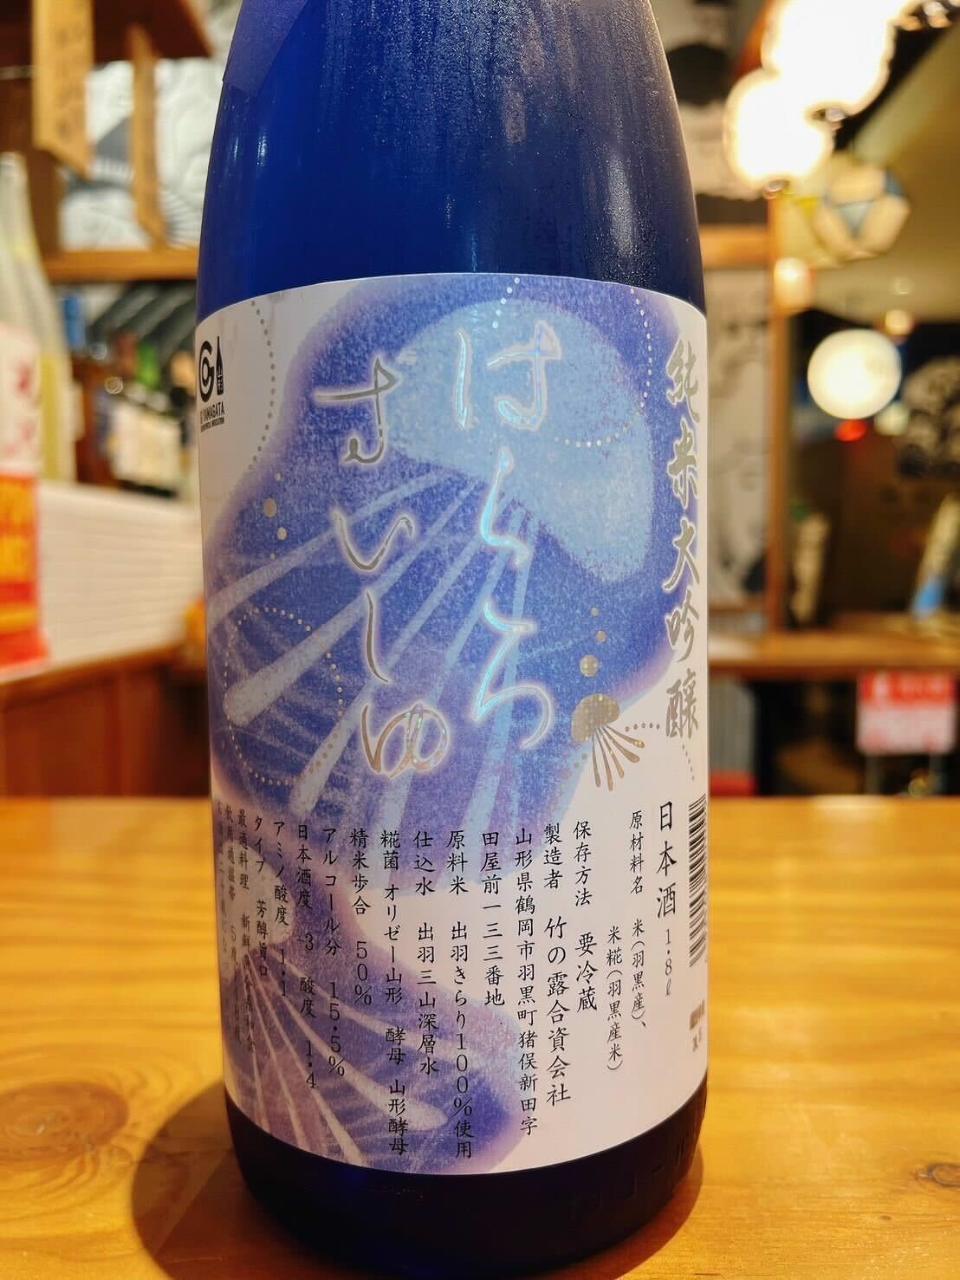 純米大吟醸
はくろ
すいしゅ
GI YAMAGATA
日本酒 1.8ℓ
原材料名 米(羽黒産)、
米糀(羽黒産米)
保存方法 要冷蔵
製造者 竹の露合資会社
山形県鶴岡市羽黒町猪俣新田字
田屋前一三三番地
原料米 出羽きらり100%使用
仕込水 出羽三山深層水
糀菌 オリゼー山形 酵母 山形酵母
精米歩合 50%
アルコール分 15.5%
日本酒度 -3 酸度 1.4
アミノ酸度 1.1
タイプ 芳醇旨口
最適料理 新鮮
飲用適温帯